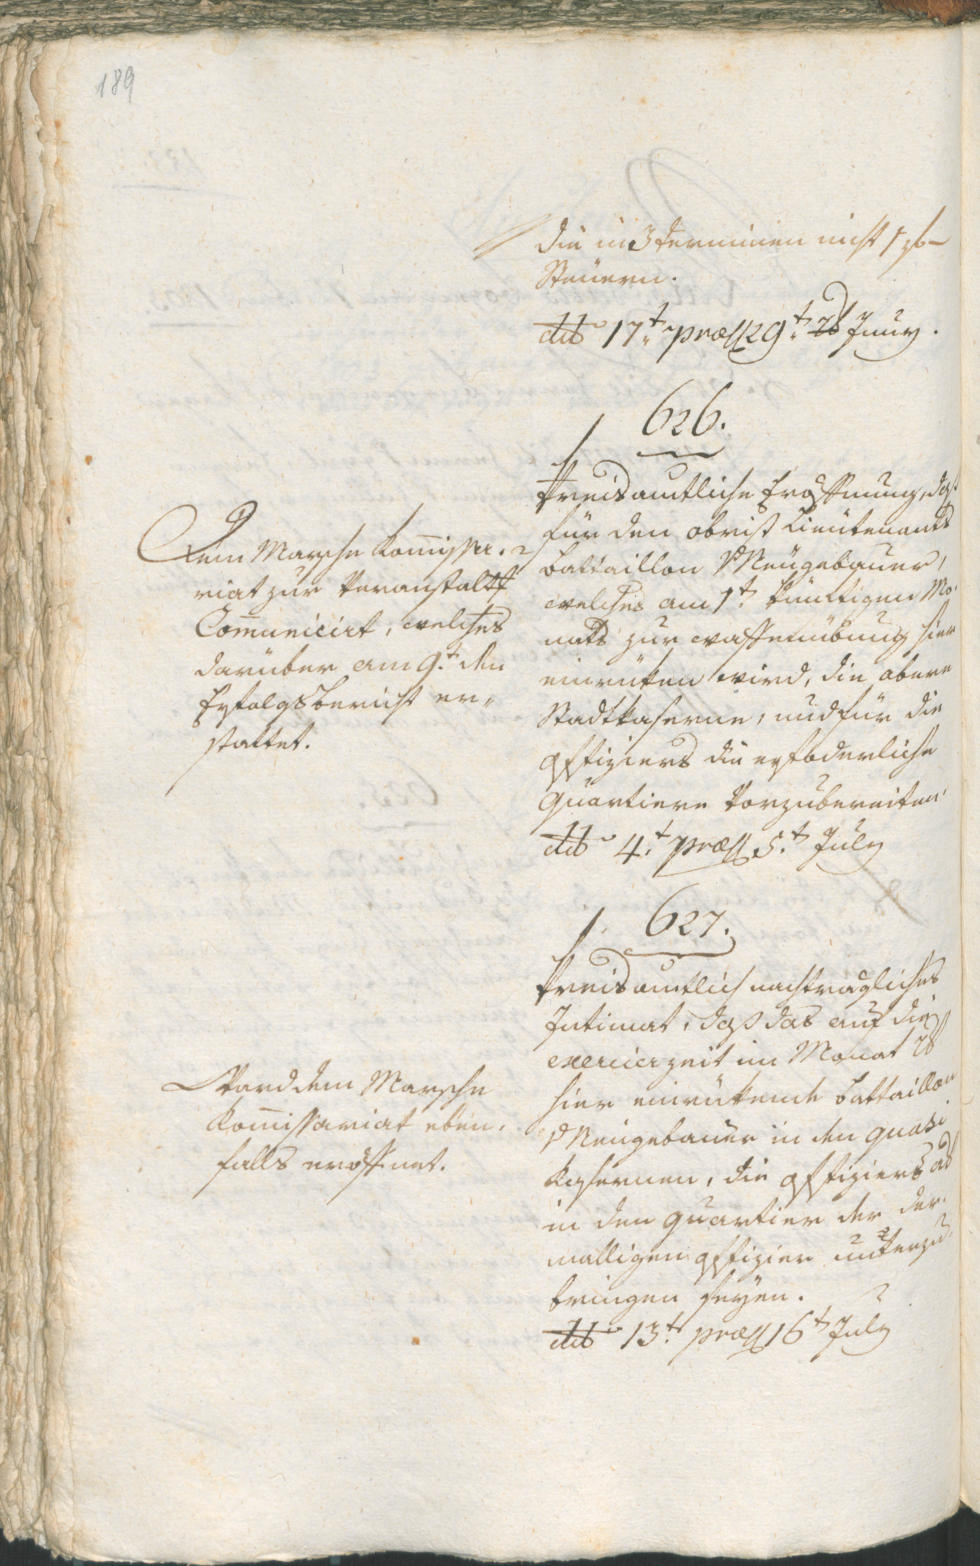 189
die in 3 terminen nicht
Steuern.
ddo 17t. præss 29t. Juny.
626.
Kreisamtliche Eröffnung, daß
für den obrist Lieutenants
Battaillon v Neugebauer,
welches am 1t. künftigen Mo-
nats zur waffenübung hier
einrüken wird, die obere
Stadtkaserne, und für die
offiziers die erfoderliche
Quartiere vorzubereiten.
ddo 4t. præss 5t. July
Dem Marsche Kom̄issa-
riat zur Veranstaltg
Com̄unicirt, welches
darüber am 9t. den
Erfolgsbericht er-
stattet.
627.
Kreisamtlich nachträgliches
Intimat, daß das auf die
exercierzeit im Monat
hier einrükende Battaillon
v Neugebauer in den quasi
Kasernen, die offiziers
in den quartier der der-
malligen offizier unterzu-
bringen seyen.
ddo 13t. præss 16t July
Ward dem Marsche
Kom̄issariat eben-
falls eröffnet.